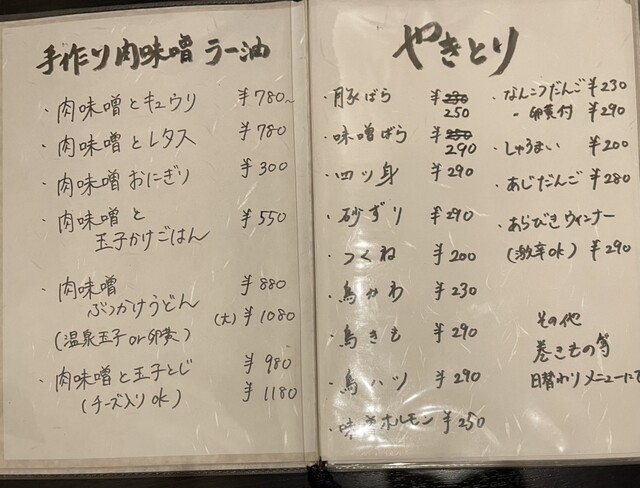 手作り肉味噌ラー油
・肉味噌とキュウリ ¥780~
・肉味噌とレタス ¥780
・肉味噌おにぎり ¥300
・肉味噌と
玉子かけごはん ¥550
・肉味噌
ぶっかけうどん ¥880
(温泉玉子or卵黄) (大)¥1080
・肉味噌と玉子とじ ¥980
(チーズ入りok) ¥1180
やきとり
・豚ばら ¥230
250
・味噌ばら ¥250
290
・四ツ身 ¥290
・砂ずり ¥290
・つくね ¥200
・鳥かわ ¥230
・鳥きも ¥290
・鳥ハツ ¥290
・味噌ホルモン ¥250
・なんこつだんご ¥230
〃 卵黄付 ¥290
・しゅうまい ¥200
・あじだんご ¥280
・あらびきウィンナー
(激辛ok) ¥290
その他
巻きもの等
日替わりメニューにて